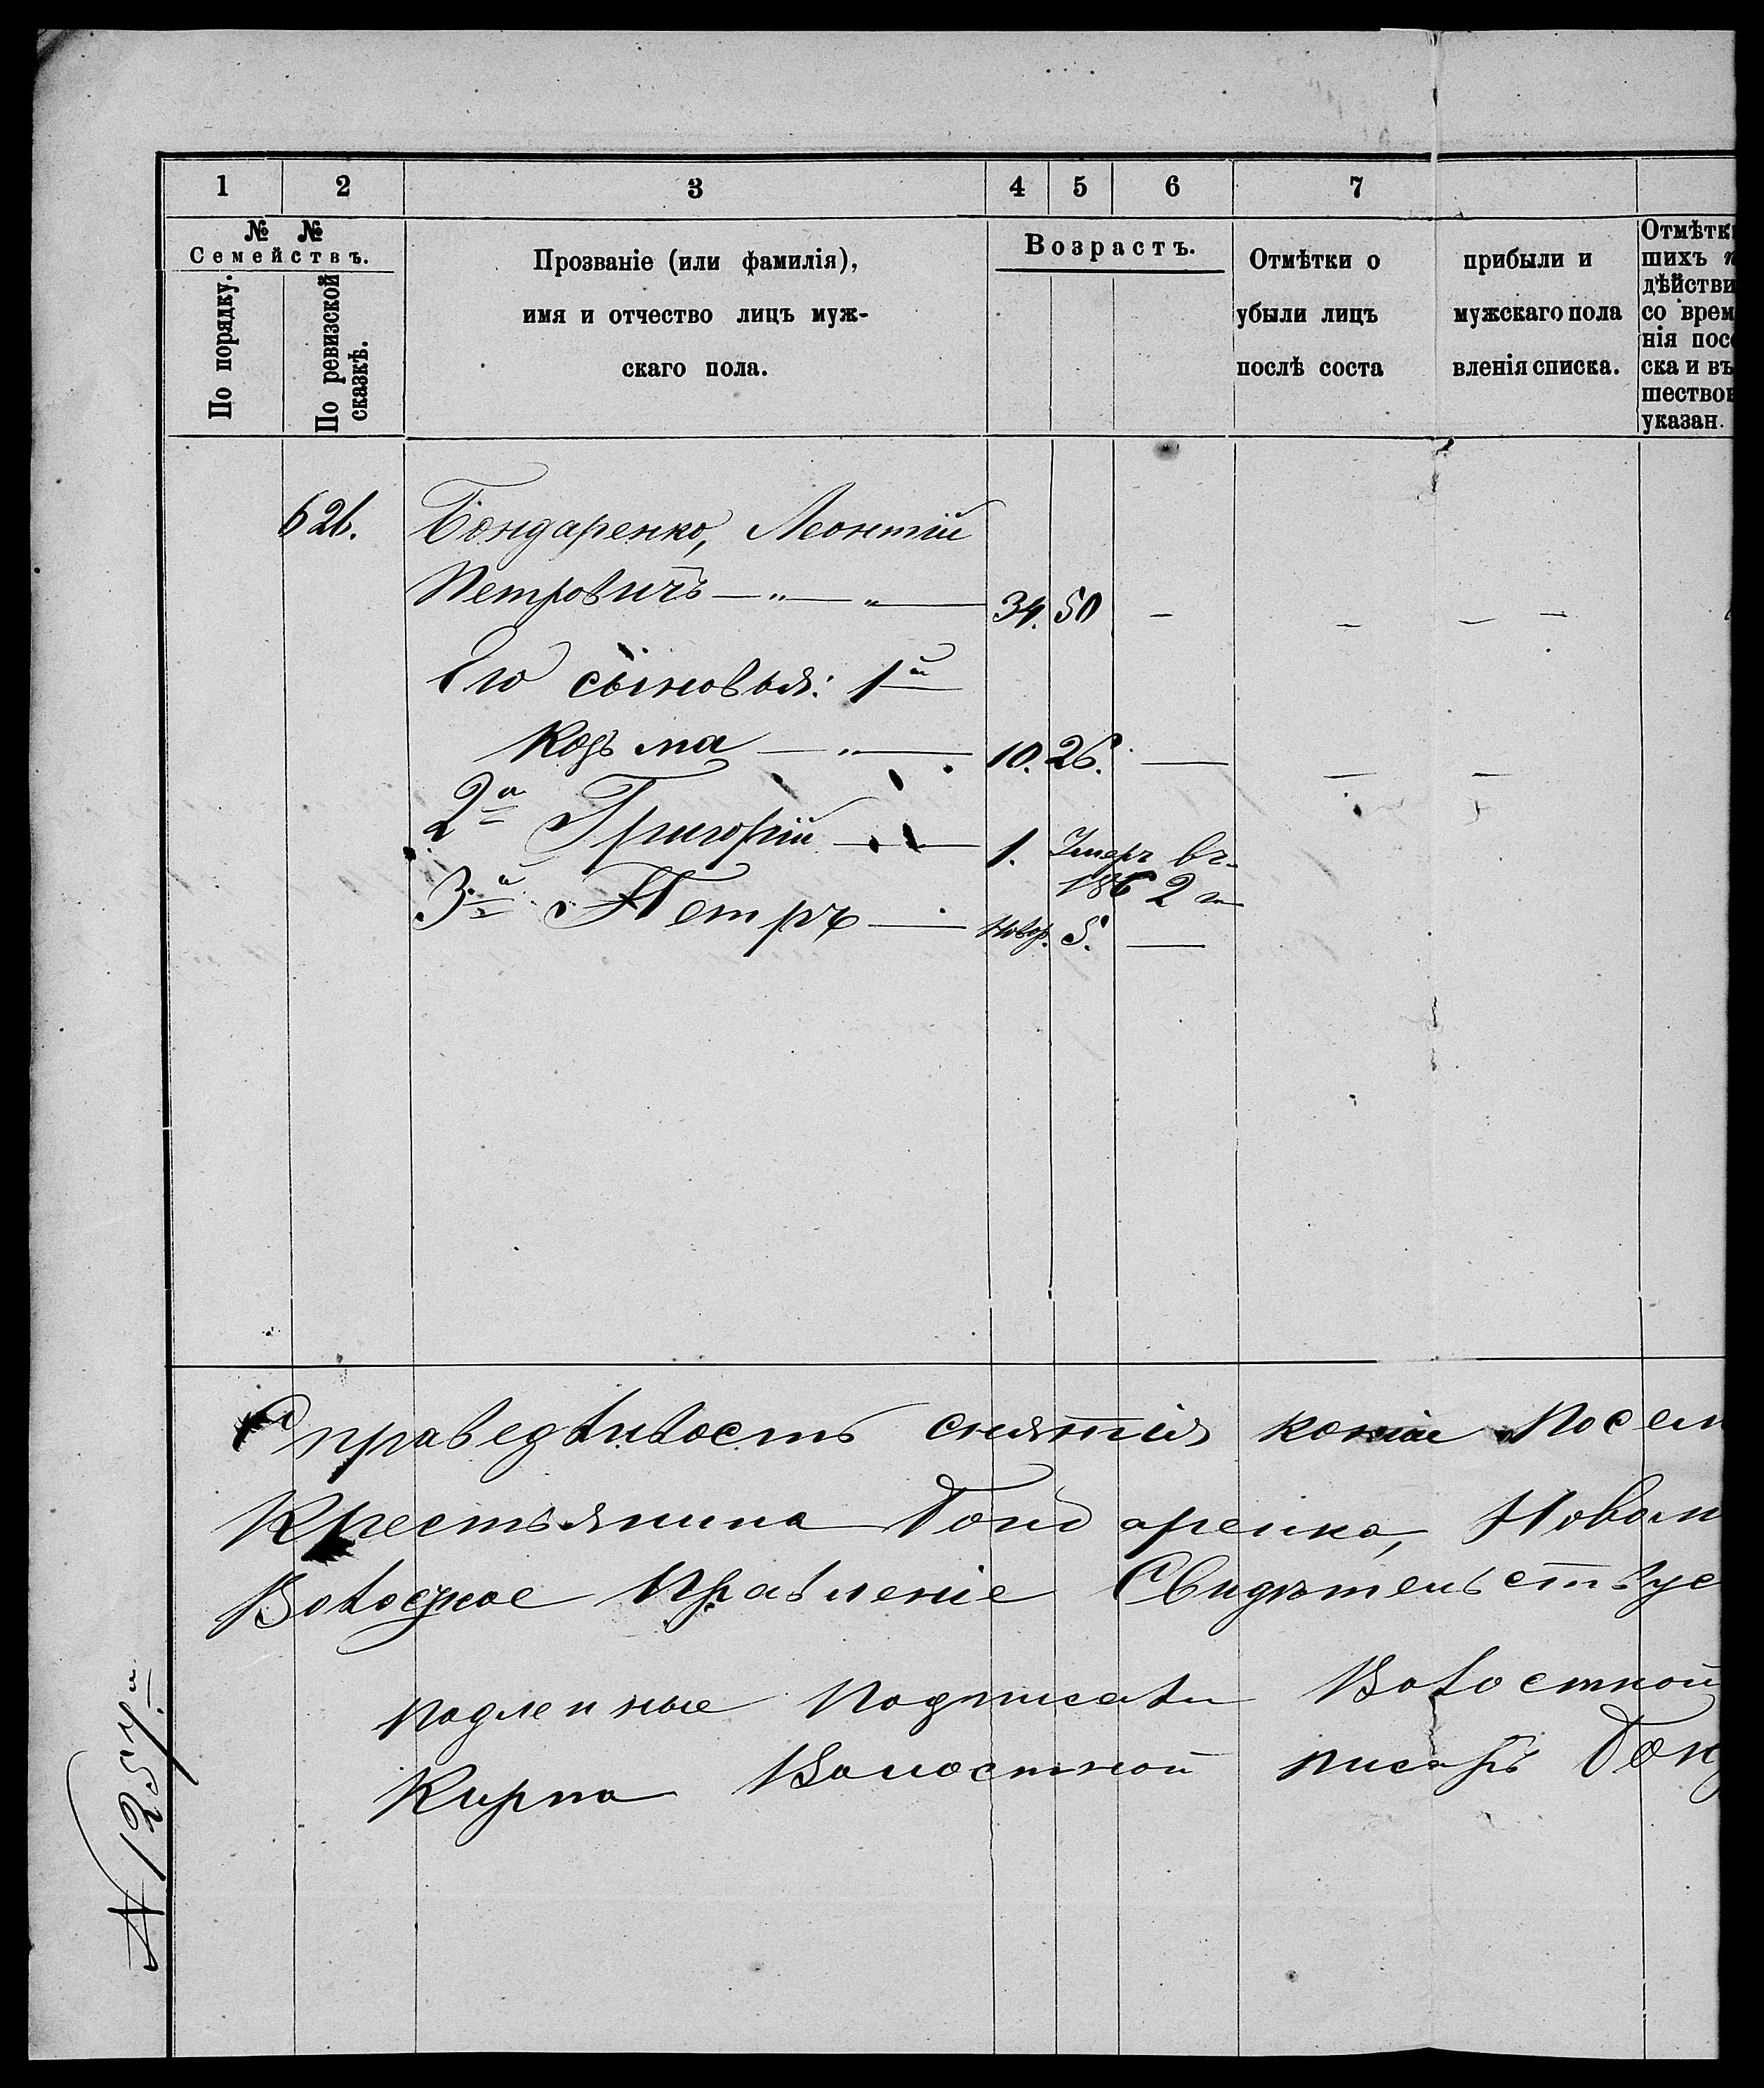 1 2 3 4 5 6 7
№ №
Семействъ.
По порядку.
По ревизской
сказкѣ.
Прозваніе (или фамилія),
имя и отчество лицъ муж-
скаго пола.
Возрастъ.
Отмѣтки о прибыли и
убыли лицъ мужскаго пола
послѣ соста вленія списка.
Отмѣтк
шихъ
дѣйстви
со врем
нія пос
ска и въ
шество
указан.
626. Бондаренко, Леонтій
Петровичъ — „ — „ — 34. 50 — — — —
Его сыновья: 1й
Козьма — „ — 10. 26. — — —
2й Григорій — 1. Умеръ въ
1862 г
3й Петръ — Новор. 5. —
Справедливость снятія копіи Посем
Крестьянина Бондаренка, Новом
Волостное Правленіе Свидѣтельствуе
подленные Подписали Волостной
Кирпа Волостной писарь Бон
№ 1257.